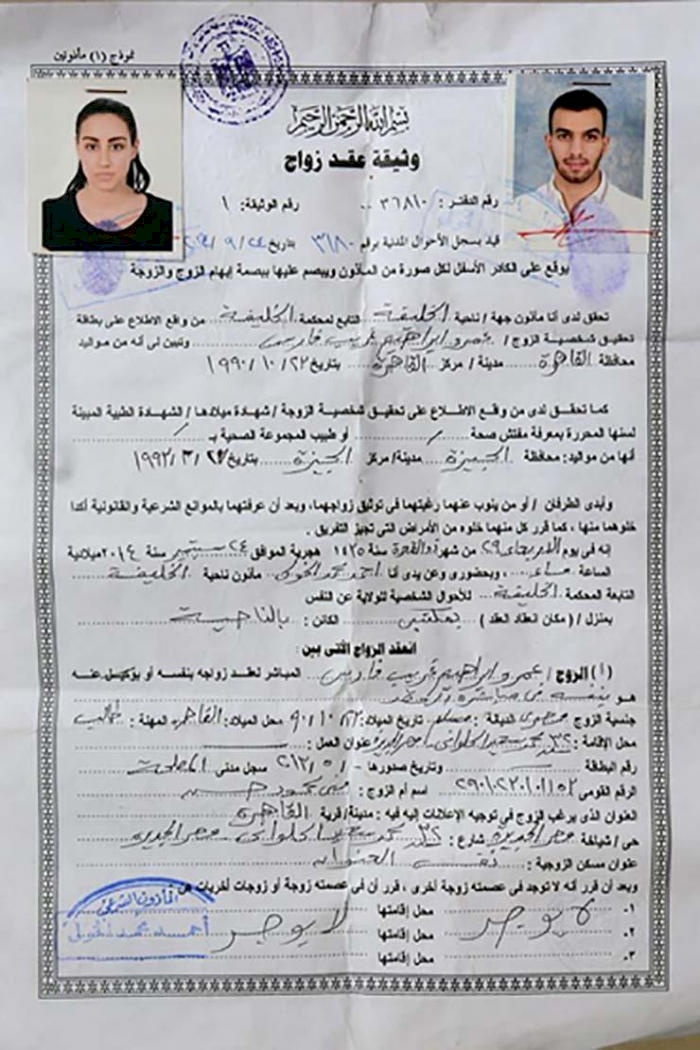 نموذج (١) مأذونين
بسم الله الرحمن الرحيم
وثيقة عقد زواج
رقم الدفتر : ٣٦٨١٠ رقم الوثيقة : ١
قيد بسجل الأحوال المدنية برقم ٣١٨٠ بتاريخ ٢٤/٩/
يوقع على الكادر الأسفل لكل صورة من المأذون ويبصم عليها ببصمة إبهام الزوج والزوجة
تحقق لدى أنا مأذون جهة / ناحية الخليفة التابع لمحكمة الخليفة من واقع الاطلاع على بطاقة
تحقيق شخصية الزوج / عمرو ابراهيم غريب فارس وتبين لى أنه من مواليد
محافظة القاهرة مدينة / مركز القاهرة بتاريخ ٢٢/ ١٠/ ١٩٩٠
كما تحقق لدى من واقع الاطلاع على تحقيق شخصية الزوجة / شهادة ميلادها / الشهادة الطبية المبينة
لسنها المحررة بمعرفة مفتش صحة أو طبيب المجموعة الصحية بـ
أنها من مواليد: محافظة الجيزة مدينة/ مركز الجيزة بتاريخ ٢٤/ ٣/ ١٩٩٢
وأبدى الطرفان / أو من ينوب عنهما رغبتهما فى توثيق زواجهما، وبعد أن عرفتهما بالموانع الشرعية والقانونية أكدا
خلوهما منها ، كما قرر كل منهما خلوه من الأمراض التى تجيز التفريق .
إنه فى يوم الاربعاء ٢٩ من شهر ذو القعدة سنة ١٤٣٥ هجرية الموافق ٢٤ سبتمبر سنة ٢٠١٤ ميلادية
الساعة مساء ، وبحضورى وعن يدى أنا احمد محمد الخولى مأذون ناحية الخليفة
التابعة لمحكمة الخليفة للأحوال الشخصية للولاية عن النفس
بمنزل / ( مكان انعقاد العقد ) بمكتبى الكائن : بالناحية
انعقد الزواج الآتى بين :
(١) الزوج / عمرو ابراهيم غريب فارس المباشر لعقد زواجه بنفسه أو بوكيل عنه
هو بنفسه فى مباشرة
جنسية الزوج مصرى الديانة مسلم تاريخ الميلاد: ٢٢/ ١٠/ ٩٠ محل الميلاد: القاهرة المهنة : طالب
محل الإقامة: ٣٢ محمد سعيد الحلوانى مصر الجديدة عنوان العمل :
رقم البطاقة وتاريخ صدورها - /٥ /٢٠١٣ سجل مدنى
الرقم القومى ٢٩٠١٠٢٢٠١٠١١٥٢ اسم أم الزوج : منى محمود حسن
العنوان الذى يرغب الزوج فى توجيه الإعلانات إليه فيه : مدينة/ قرية القاهرة
حى / شياخة مصر الجديدة شارع : ٣٢ محمد سعيد الحلوانى مصر الجديدة
عنوان مسكن الزوجية : نفس العنوان
وبعد أن قرر أنه لا توجد فى عصمته زوجة أخرى ، قرر أن فى عصمته زوجة أو زوجات أخريات هن
١- لا يوجد محل إقامتها لا يوجد
٢- محل إقامتها
٣- محل إقامتها
المأذون الشرعى
أحمد محمد الخولى